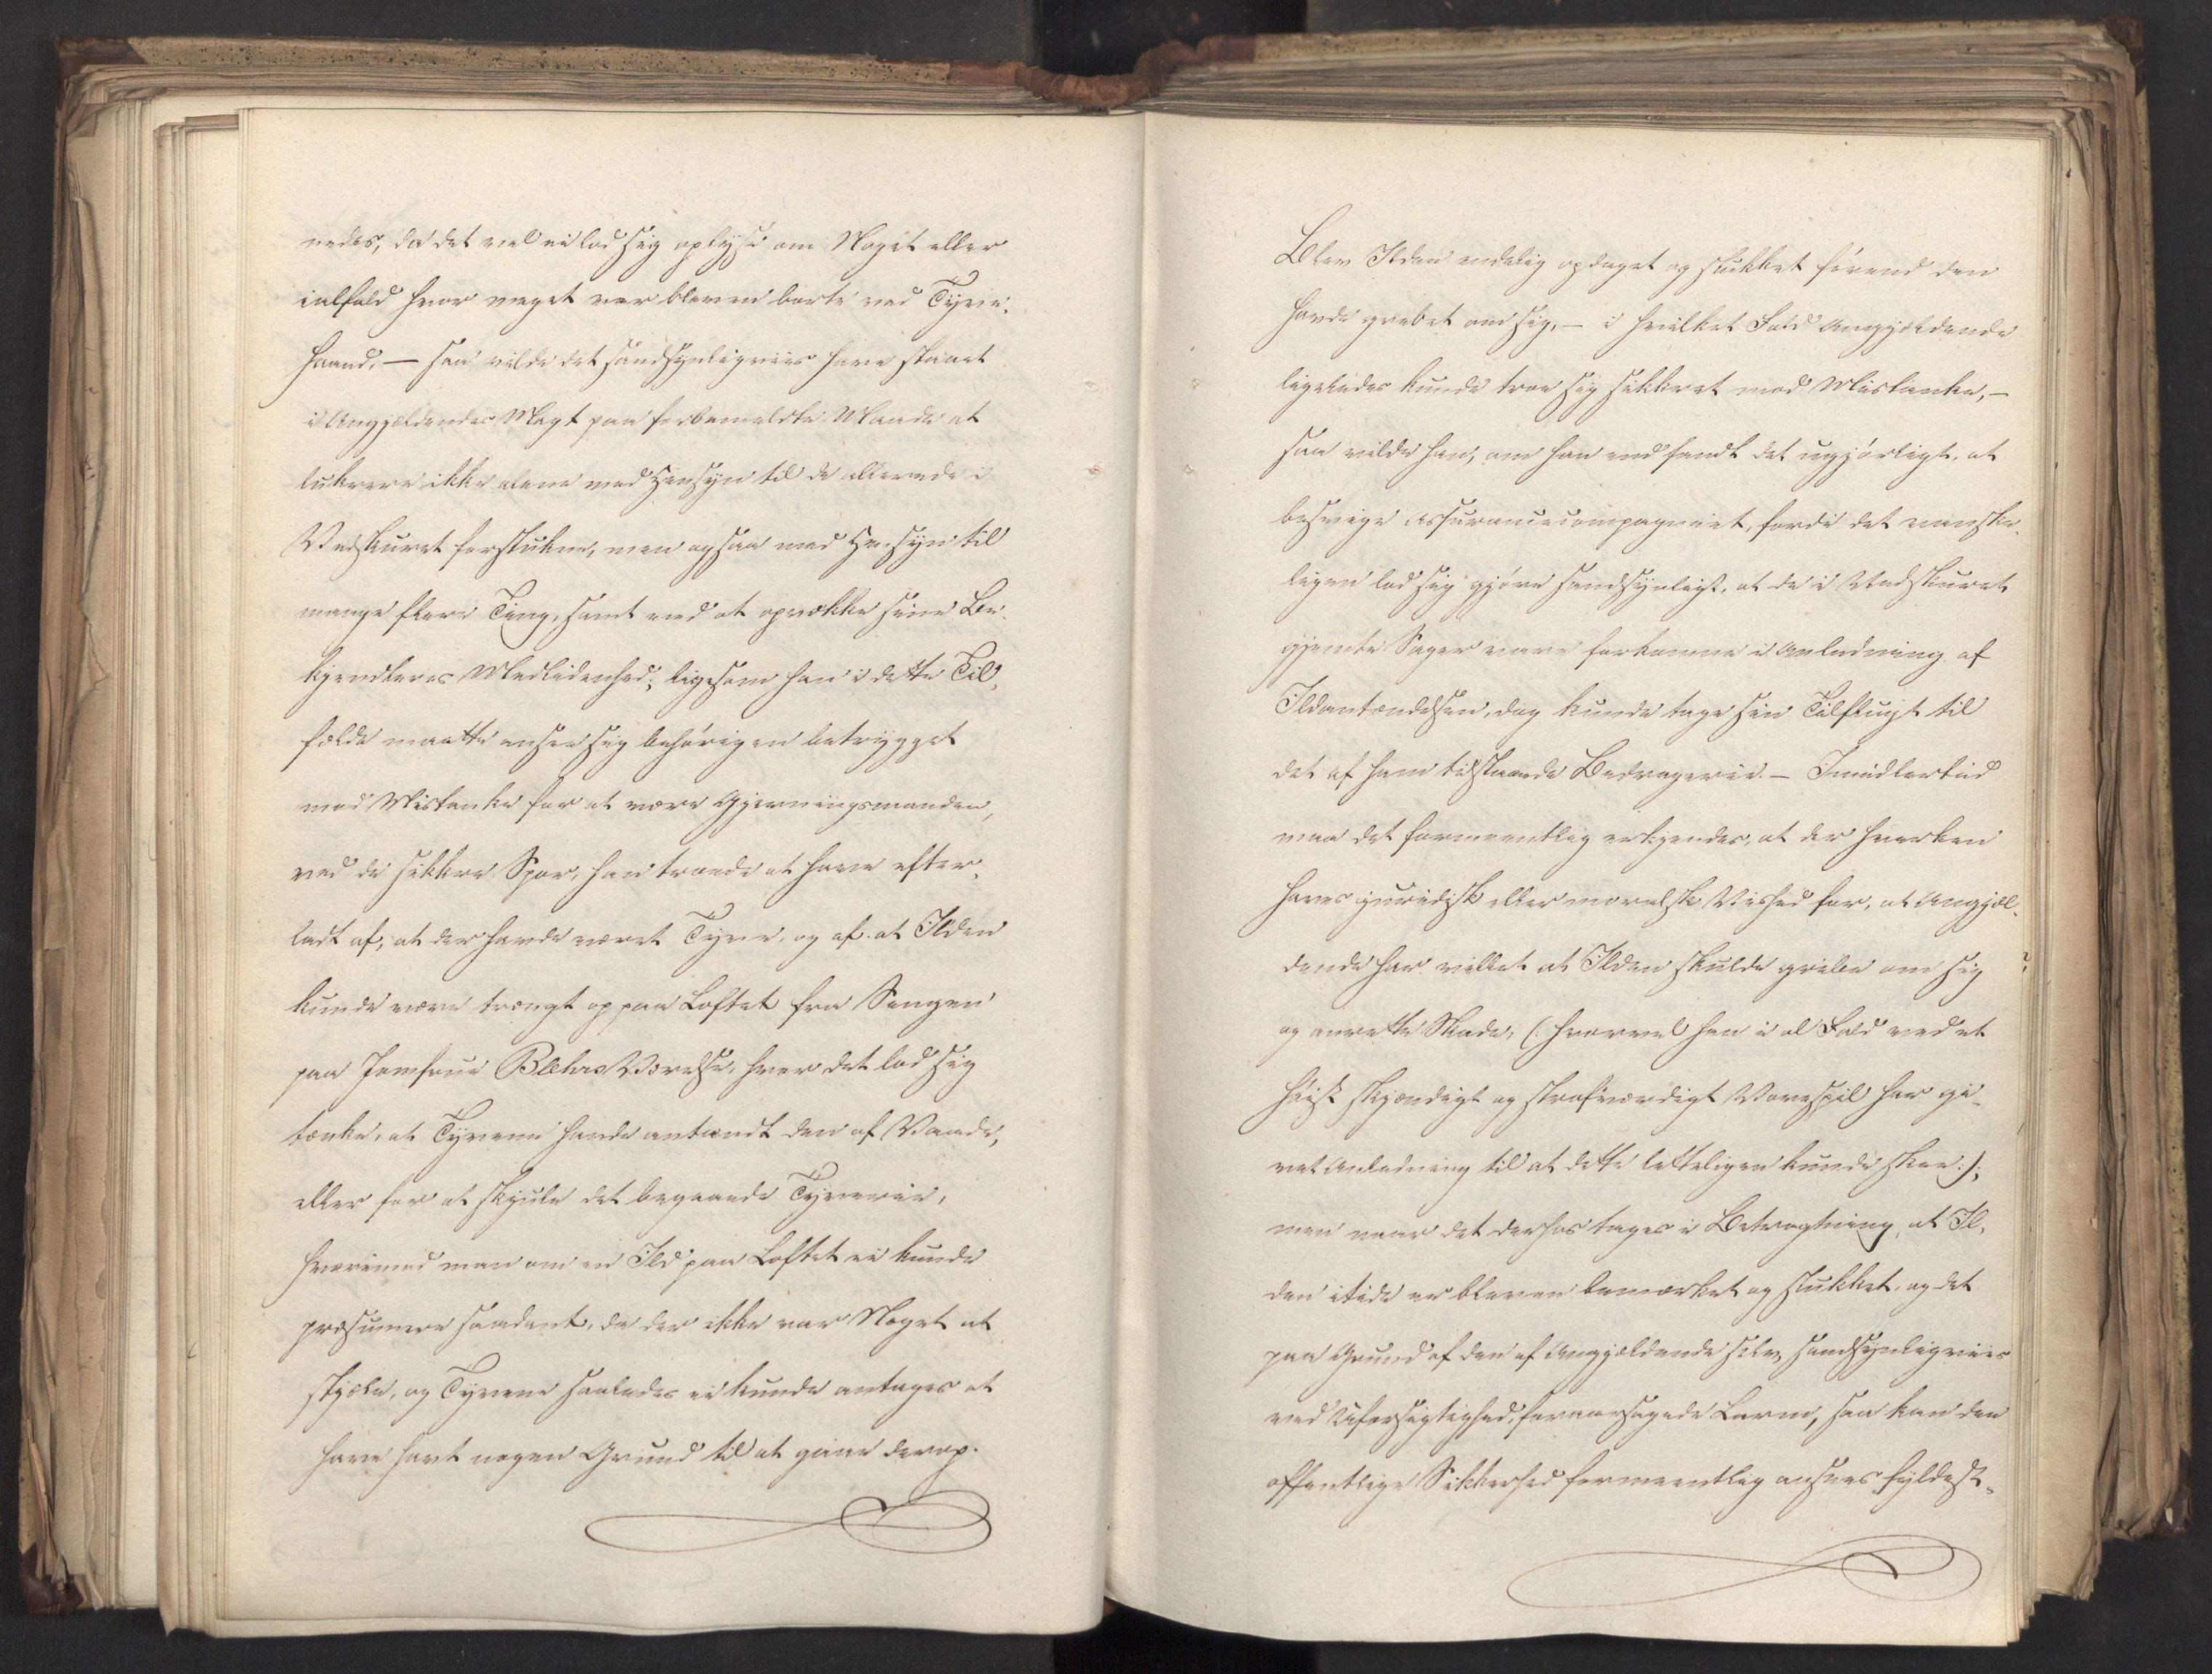 nedes, da det vel ei lod sig oplyse om Noget eller
ialfald hvor meget var bleven borte ved Tyve-
haand, — saa vilde det sandsynligviis have staaet
i Angjældendes Magt paa forbemeldte Maade at
lukrere ikke alene med Hensyn til de allerede i
Vedskuret forstukne, men ogsaa med Hensyn til
mange flere Ting, samt ved at opvække sine Be-
kjendteres Medlidenhed; ligesom han i dette Til-
fælde maatte ansee sig behørigen betrygget
mod Mistanke for at være Gjerningsmanden,
ved de sikkre Spor, han troede at have efter-
ladt af, at der havde været Tyve, og af at Ilden
kunde være trængt op paa Loftet fra Sengen
paa Jomfrue Blehrs Værelse, hvor det lod sig
tænke, at Tyvene havde antændt den af Vaade,
eller for at skjule det begaaede Tyverie,
hvorimod man om en Ild paa Loftet ei kunde
præsumere saadant, da der ikke var Noget at
stjæle, og Tyvene saaledes ei kunde antages at
have havt nogen Grund til at gaae derop.
Blev Ilden endelig opdaget og slukket førend den
havde grebet om sig, — i hvilket Fald Angjældende
ligeledes kunde troe sig sikkret mod Mistanke, —
saa vilde han, om han end fandt det ugjørligt, at
besvige Assurancecompagniet, fordi det vanske-
ligen lod sig gjøre sandsynligt, at de i Vedskuret
gjemte Sager vare forkomne i Anledning af
Ildantændelsen, dog kunde tage sin Tilflugt til
det af ham tilstaaede Bedragerie. — Imidlertid
maa det formeentlig erkjendes, at der hverken
haves juridisk eller moralsk Vished for, at Angjæl-
dende har villet at Ilden skulde gribe om sig
og anrette Skade, (: hvorvel han i al Fald ved et
høist skjændigt og strafværdigt Vovespil har gi-
vet Anledning til at dette letteligen kunde skee :);
men naar det derhos tages i Betragtning, at Il-
den itide er bleven bemærket og slukket, og det
paa Grund af den af Angjældende selv, sandsynligviis
ved Uforsigtighed, foraarsagede Larm, saa kan den
offentlige Sikkerhed formeentlig ansees fyldest-